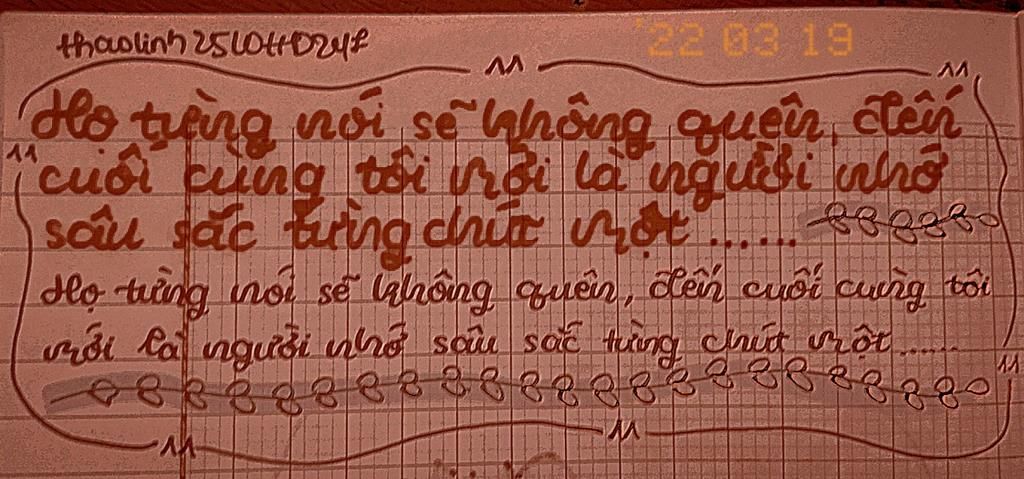 '22 03 19
Họ từng nói sẽ không quên, đến
cuối cùng tôi mới là người nhớ
sâu sắc từng chút một......
Họ từng nói sẽ không quên, đến cuối cùng tôi
mới là người nhớ sâu sắc từng chút một......